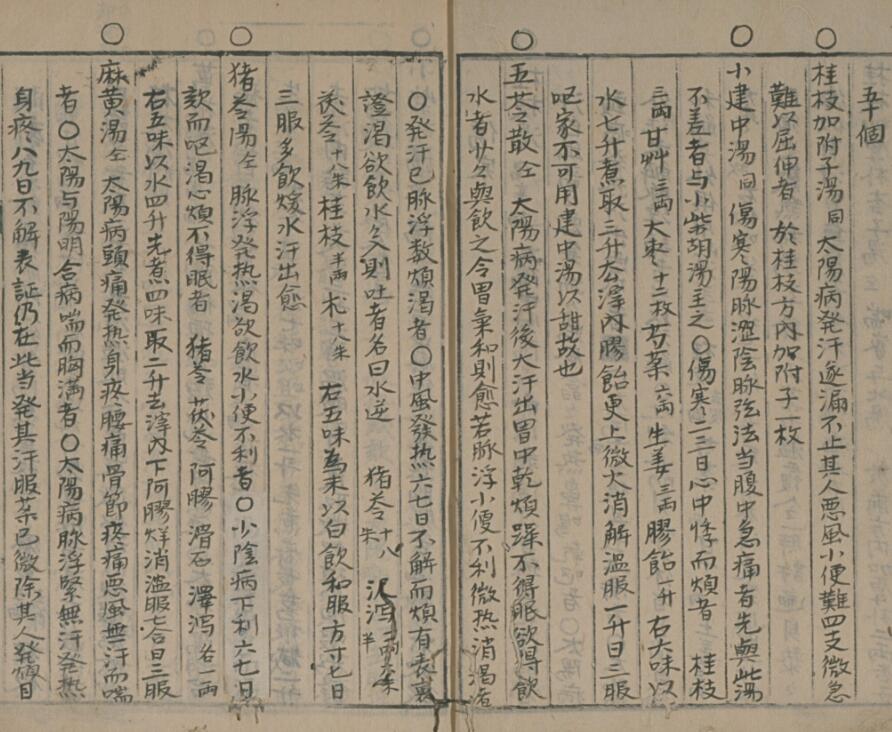 五十個
桂枝加附子湯同 太陽病発汗遂漏不止其人悪風小便難四支微急
難以屈伸者 於桂枝方内加附子一枚
小建中湯同 傷寒陽脉澀陰脉弦法当腹中急痛者先與此湯
不差者与小柴胡湯主之〇傷寒二三日心中悸而煩者 桂枝
三両甘艸三両大棗十二枚芍薬六両生姜三両膠飴一升右六味以
水七升煮取三升去滓内膠飴更上微火消解温服一升日三服
呕家不可用建中湯以甜故也
五苓散仝 太陽病発汗後大汗出胃中乾煩躁不得眠欲得飲
水者少々與飲之令胃気和則愈若脉浮小便不利微热消渇者
〇発汗已脉浮数煩渇者〇中風發热六七日不解而煩有表裏
證渇欲飲水々入則吐者名曰水逆 猪苓十八朱 沢瀉一両六朱半
茯苓十八朱桂枝半両朮十八朱 右五味為末以白飲和服方寸匕日
三服多飲煖水汗出愈
猪苓湯仝 脉浮発热渇欲飲水小便不利者〇少陰病下利六七日
欬而呕渇心煩不得眠者 猪苓 茯苓 阿膠 滑石 澤瀉各一両
右五味以水四升先煮四味取二升去滓内下阿膠烊消温服七合日三服
麻黄湯仝 太陽病頭痛発热身疼腰痛骨節疼痛悪風無汗而喘
者〇太陽与陽明合病喘而胸満者〇太陽病脉浮緊無汗発热
身疼八九日不解表証仍在此当発其汗服薬已微除其人発煩目